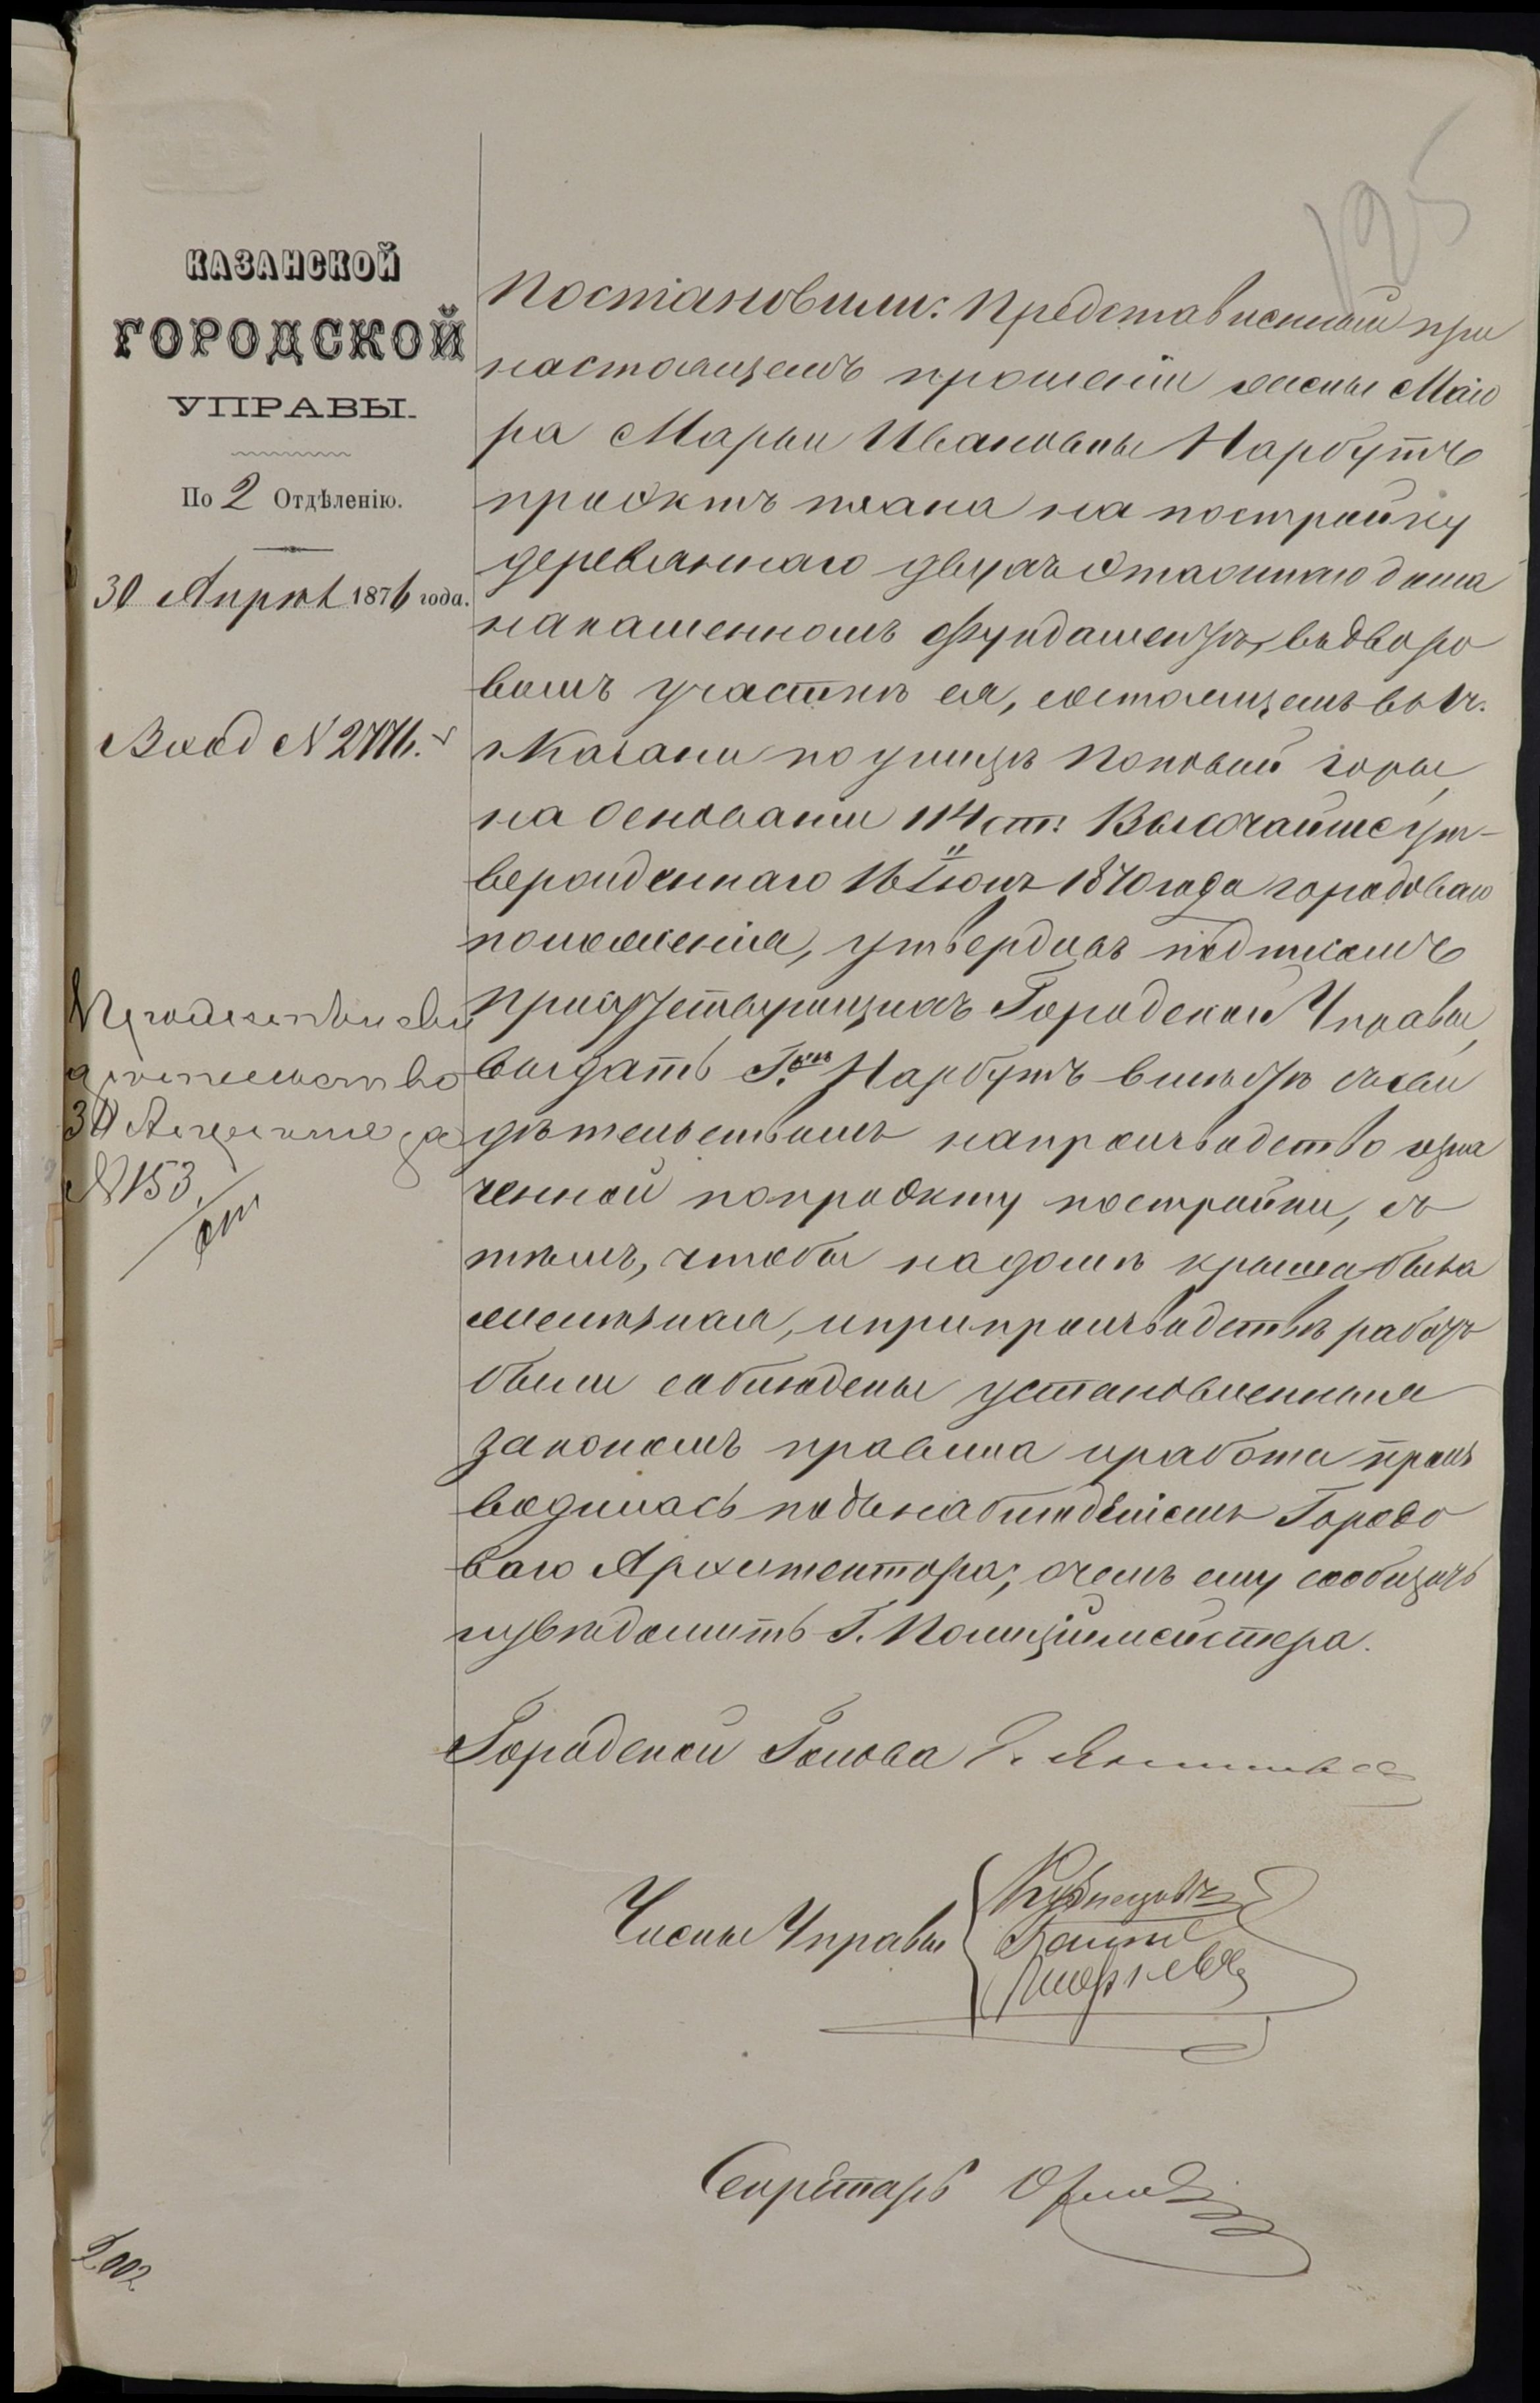 195
КАЗАНСКОЙ
ГОРОДСКОЙ
УПРАВЫ.
По 2 Отдѣленію.
30 Апрѣл 1876 года.
Вход N 2776.
Постановили: Представленный при
настоящемъ прошеніи жены Маіо
ра Марьи Ивановны Нарбутъ
проэктъ плана на постройку
деревяннаго двухъ этажнаго дома
на каменномъ фундаментѣ, въ дворо
вомъ участкѣ ея, состоящемъ во 1 ч.
г. Казани по улицѣ Поповой горы,
на основаніи 114 ст. Высочайше ут-
вержденнаго 16 Іюня 1870 года городоваго
положенія, утвердивъ подписомъ
присутствующихъ Городской Управы,
выдать Г.жѣ Нарбутъ вмѣстѣ съ сви
дѣтельствомъ на производство озна
ченной по проэкту постройки, съ
тѣмъ, чтобы на домѣ крыша была
желѣзная, и при производствѣ работъ
были соблюдены установленныя
закономъ правила и работа произ
водилась подъ наблюденіемъ Городо
ваго Архитектора, о чемъ ему сообщить
и увѣдомить Г. Полиціймейстера.
свид
дѣтельство
30 за
N 153.
Городской Голова Э. Янишевс
Члены Управы
Кузнецовъ
Секретарь Орлов
2002